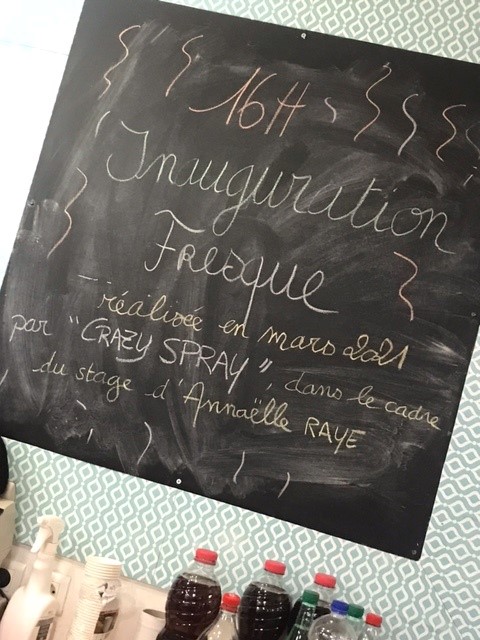 16H
Inauguration
Fresque
réalisée en mars 2021
par "CRAZY SPRAY", dans le cadre
du stage d'Annaëlle RAYE